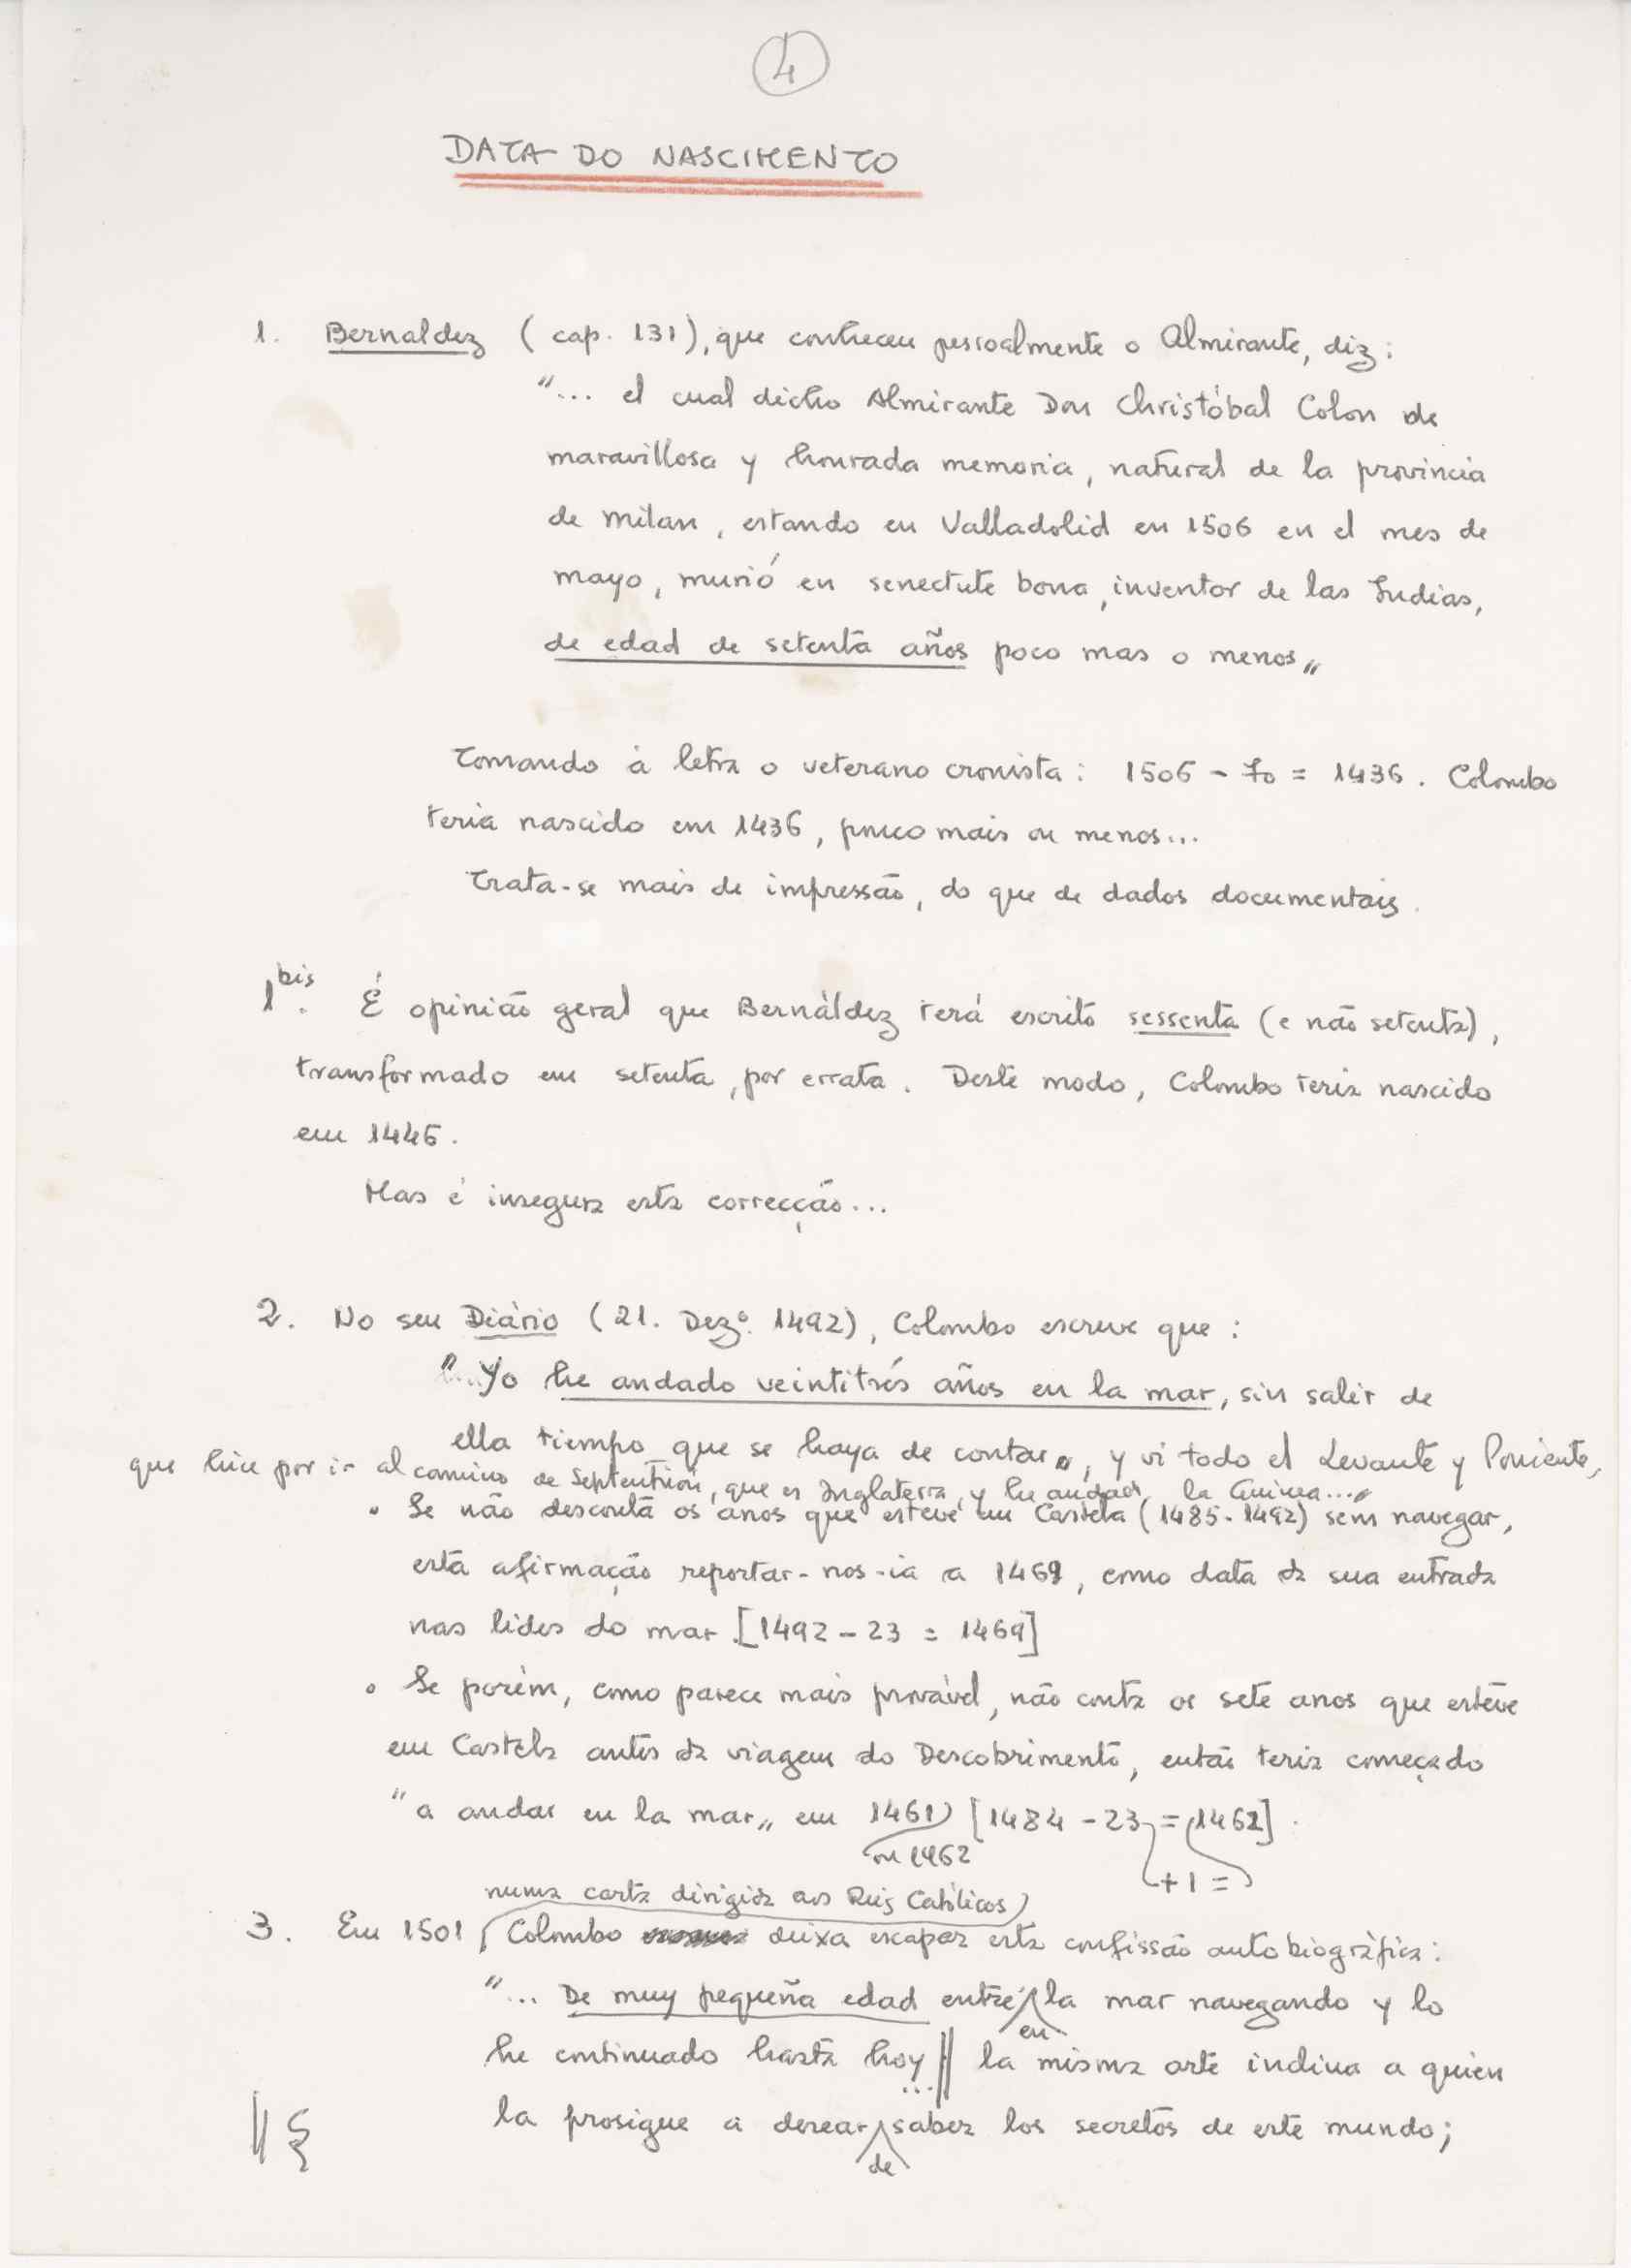 4
DATA DO NASCIMENTO
1. Bernaldez (cap. 131), que conheceu pessoalmente o Almirante, diz:
"... el cual dicho Almirante Don Christóbal Colon de
maravillosa y honrada memoria, natural de la provincia
de Milan, estando en Valladolid en 1506 en el mes de
mayo, murió en senectute bona, inventor de las Indias,
de edad de setenta años poco mas o menos"
Tomando à letra o veterano cronista: 1506 - 70 = 1436. Colombo
teria nascido em 1436, pouco mais ou menos...
Trata-se mais de impressão, do que de dados documentais.
1bis. É opinião geral que Bernáldez terá escrito sessenta (e não setenta),
transformado em setenta, por errata. Deste modo, Colombo teria nascido
em 1446.
Mas é insegura esta correcção...
2. No seu Diário (21. Dezº. 1492), Colombo escreve que:
"Yo he andado veintitrés años en la mar, sin salir de
ella tiempo que se haya de contar, y vi todo el Levante y Poniente,
que hice por ir al camino de Septentrión, que es Inglaterra, y he andado la Guinea..."
• Se não desconta os anos que esteve em Castela (1485-1492) sem navegar,
esta afirmação reportar-nos-ia a 1469, como data da sua entrada
nas lides do mar [1492 - 23 = 1469]
• Se porém, como parece mais provável, não conta os sete anos que esteve
em Castela antes da viagem do Descobrimento, então teria começado
"a andar en la mar" em 1461 [1484 - 23 = 1462].
ou 1462
+ 1 =
numa carta dirigida aos Reis Católicos
3. Em 1501, Colombo deixa escapar esta confissão autobiográfica:
"... De muy pequeña edad entré la mar navegando y lo
en
he continuado hasta hoy ... || la misma arte inclina a quien
la prosigue a desear saber los secretos de este mundo;
de